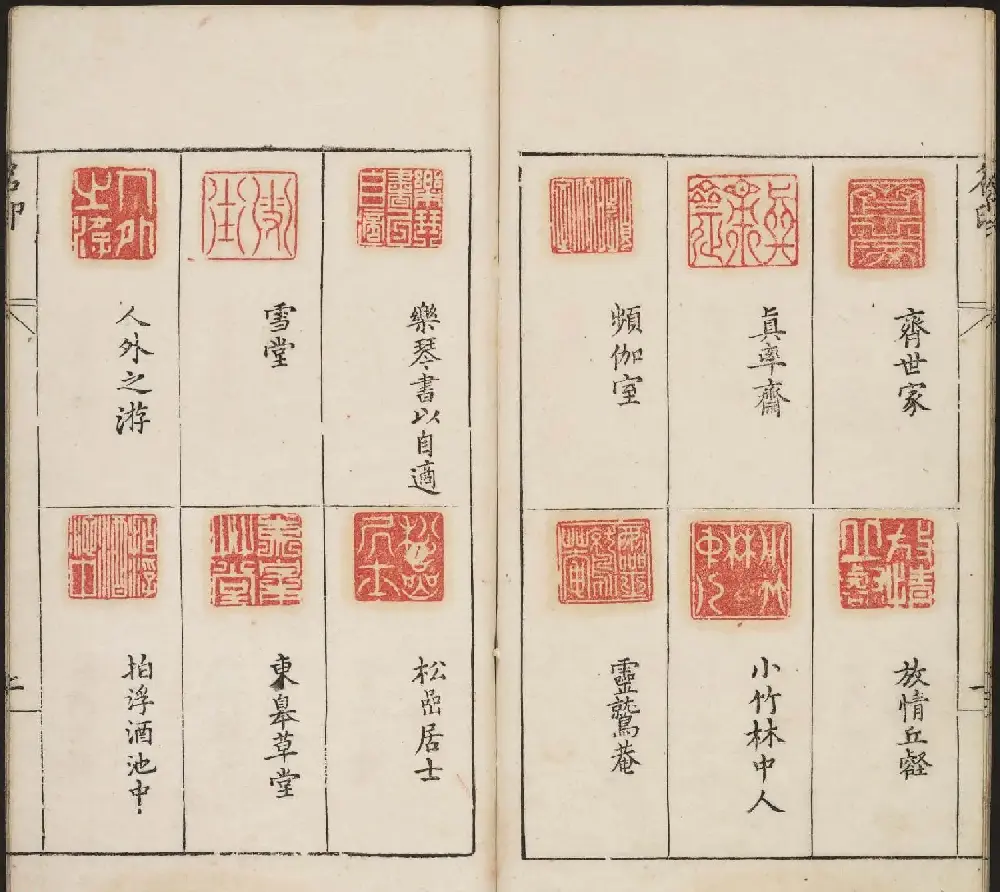 齊世家
眞率齋
頻伽室
放情丘壑
小竹林中人
靈鷲菴
樂琴書以自適
雪堂
人外之游
松嵒居士
東皋草堂
拍浮酒池中